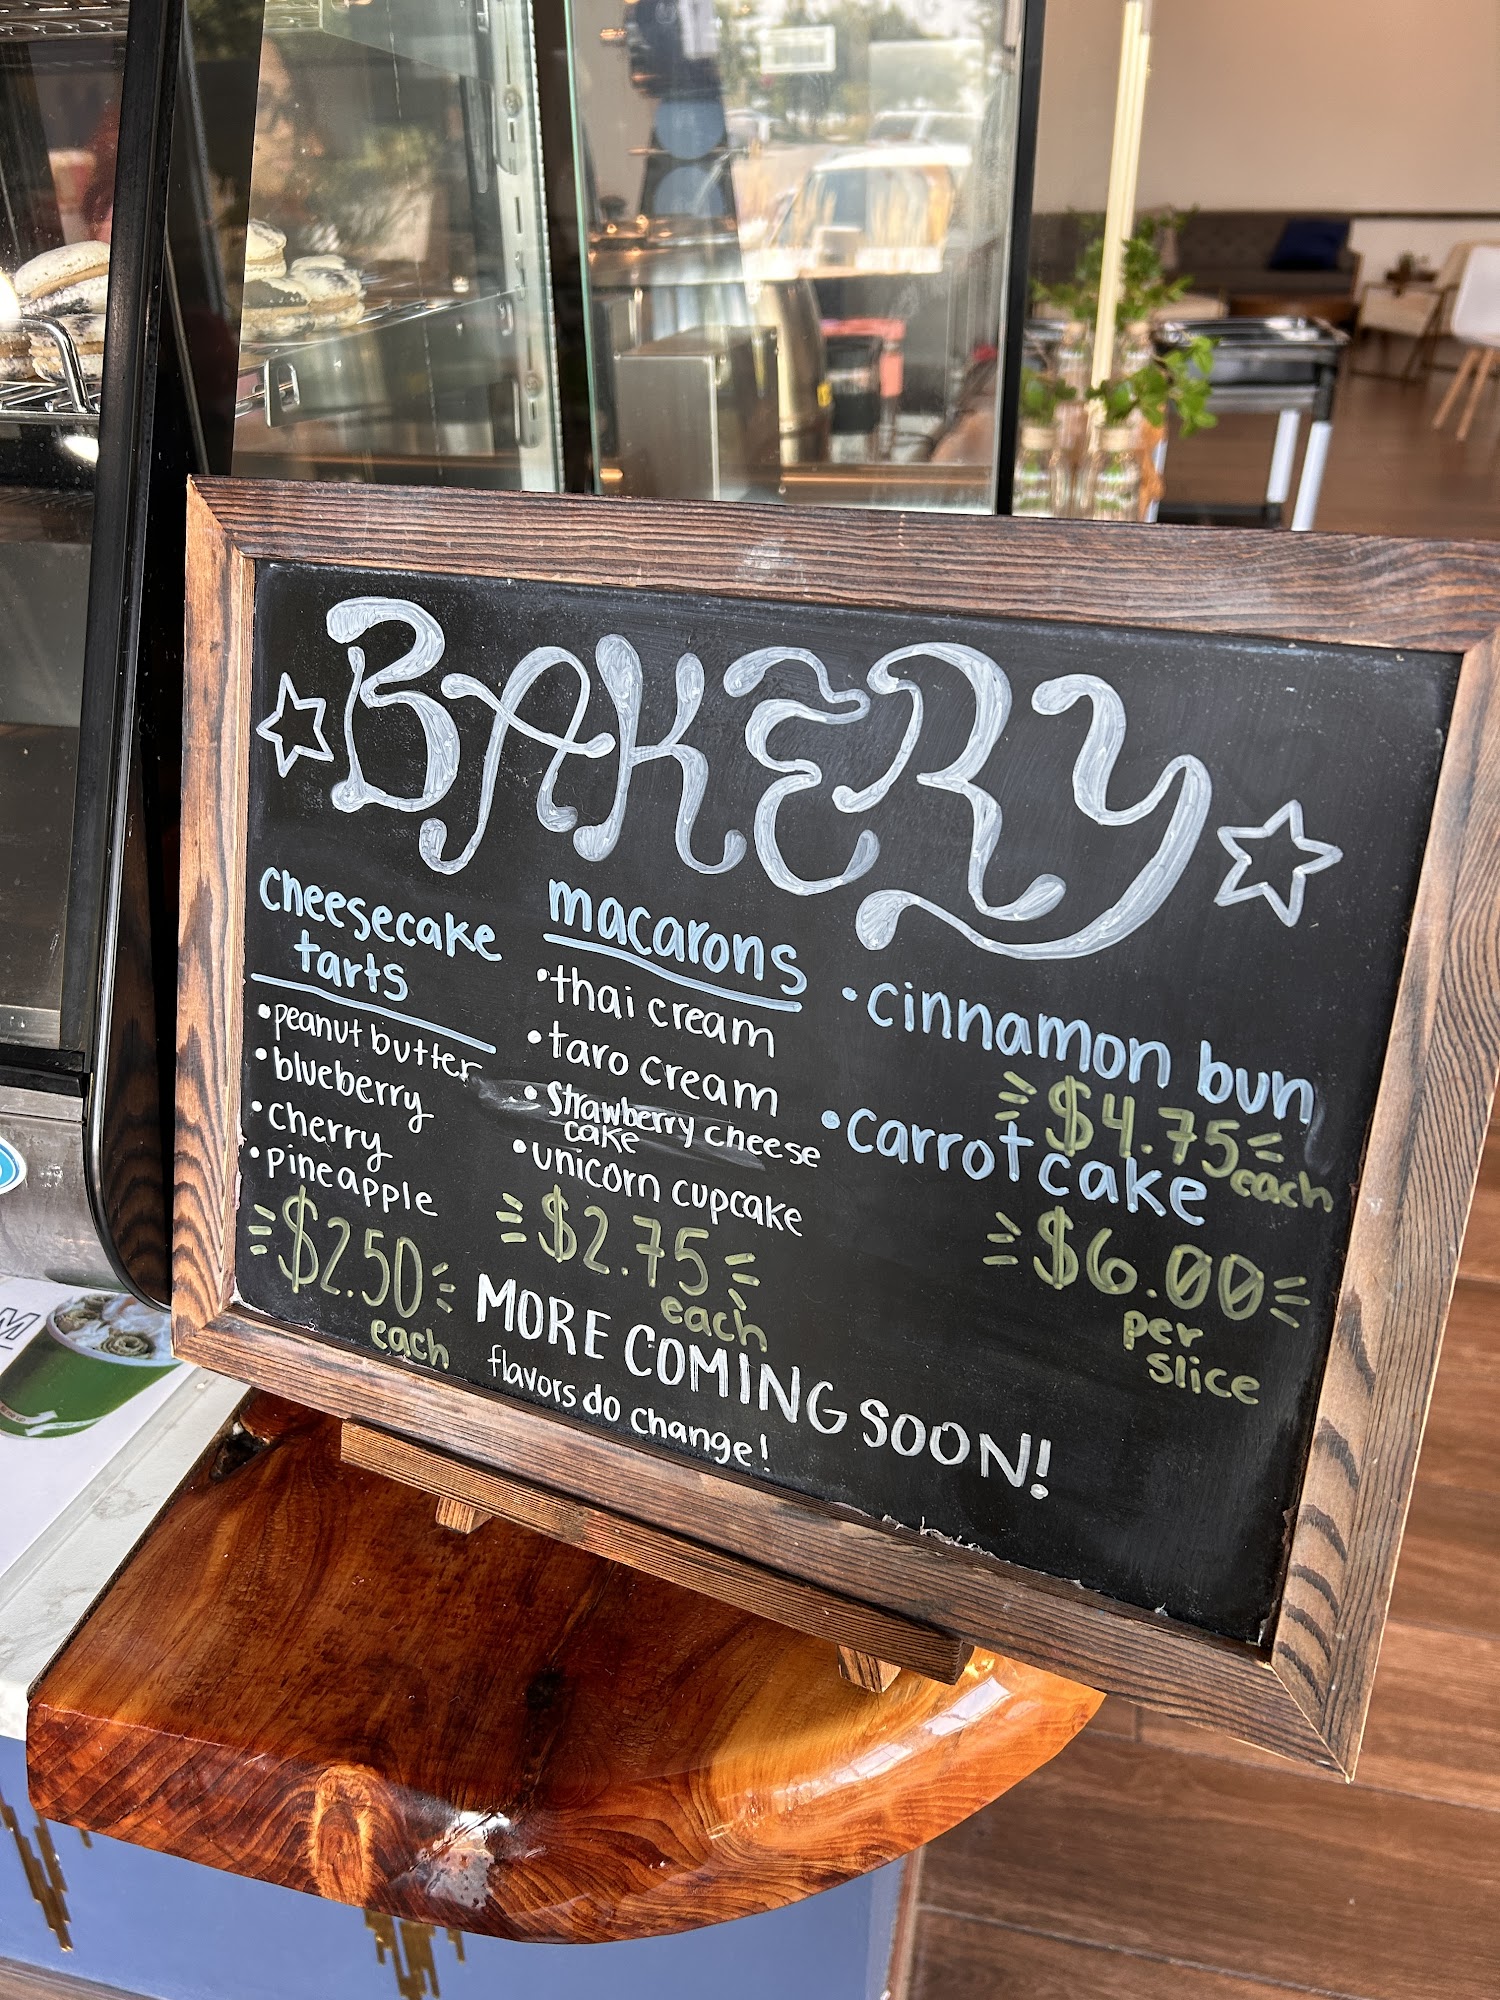 BAKERY
cheesecake
tarts
•peanut butter
•blueberry
•cherry
•pineapple
$2.50
each
macarons
•thai cream
•taro cream
•Strawberry cheese
cake
•unicorn cupcake
$2.75
each
•cinnamon bun
$4.75
each
•carrot cake
$6.00
per
slice
MORE COMING SOON!
flavors do change!